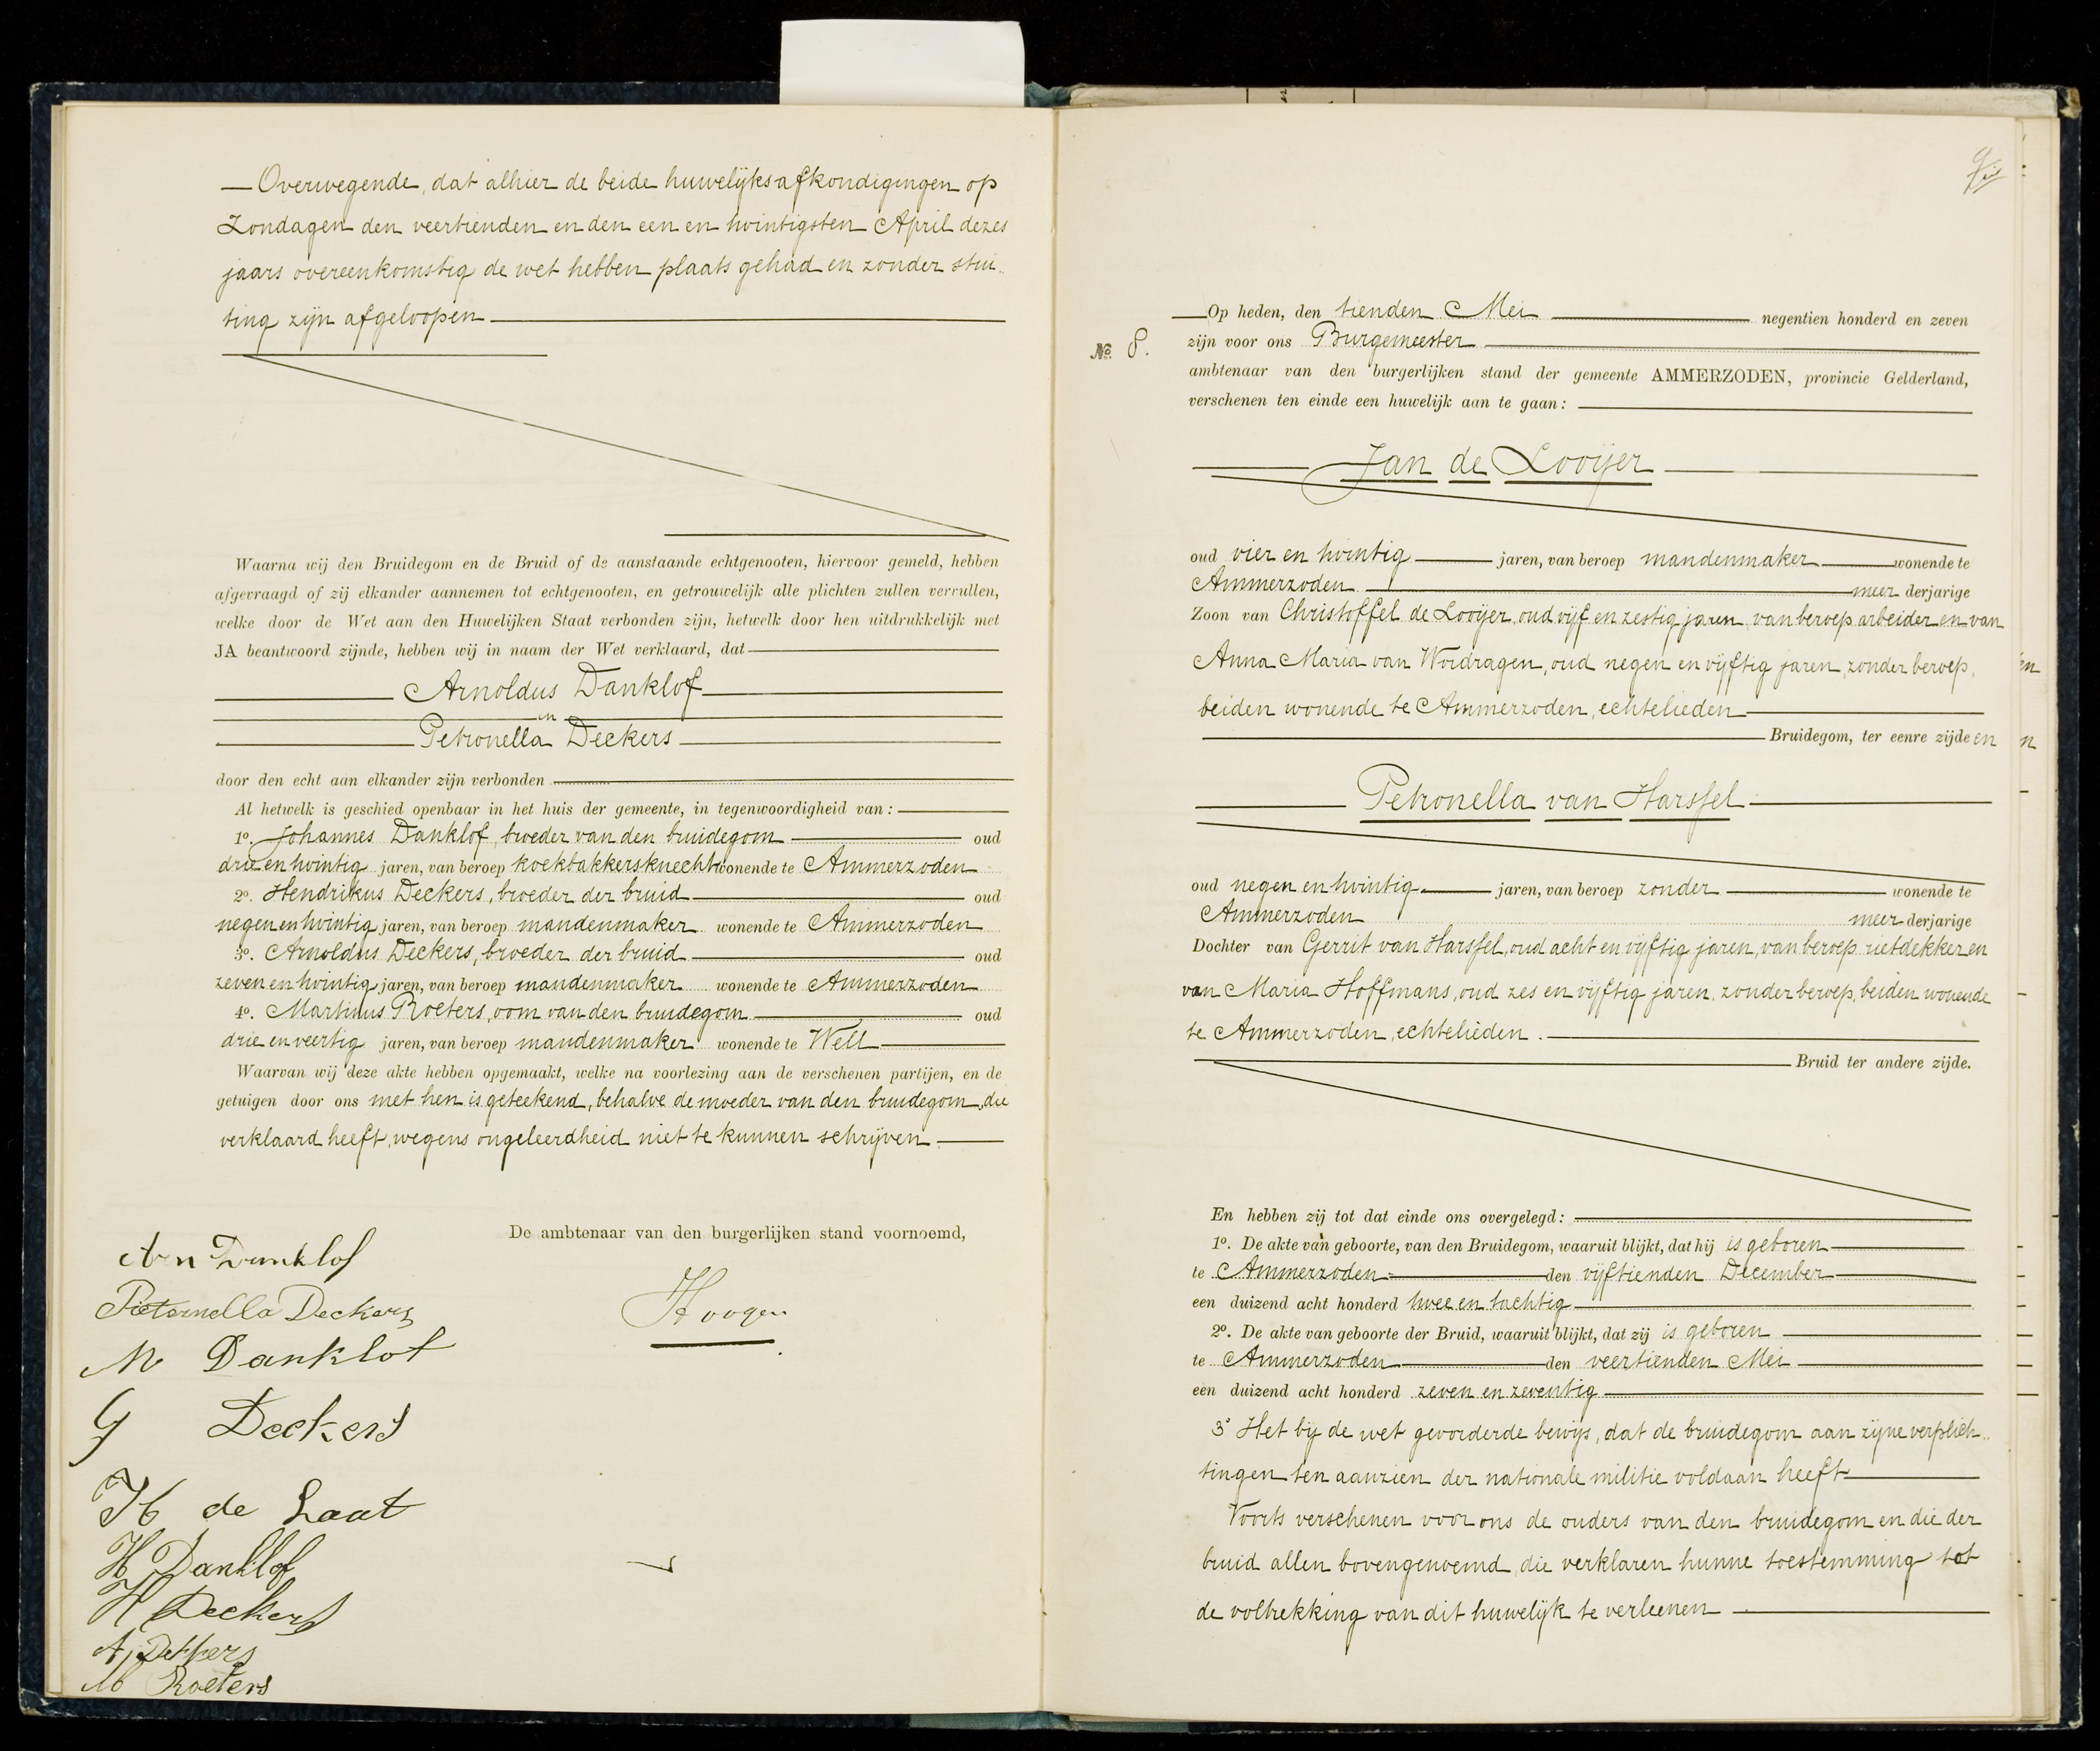 — Overwegende, dat alhier de beide huwelijksafkondigingen op
Zondagen den veertienden en den een en twintigsten April dezes
jaars overeenkomstig de wet hebben plaats gehad en zonder stui-
ting zijn afgeloopen
Waarna wij den Bruidegom en de Bruid of de aanstaande echtgenooten, hiervoor gemeld, hebben
afgevraagd of zij elkander aannemen tot echtgenooten, en getrouwelijk alle plichten zullen vervullen,
welke door de Wet aan den Huwelijken Staat verbonden zijn, hetwelk door hen uitdrukkelijk met
JA beantwoord zijnde, hebben wij in naam der Wet verklaard, dat
Arnoldus Danklof
en
Petronella Deckers
door den echt aan elkander zijn verbonden
Al hetwelk is geschied openbaar in het huis der gemeente, in tegenwoordigheid van:
1o. Johannes Danklof, broeder van den bruidegom oud
drie en twintig jaren, van beroep koekbakkersknecht wonende te Ammerzoden
2o. Hendrikus Deckers, broeder der bruid oud
negen en twintig jaren, van beroep mandenmaker wonende te Ammerzoden
3o. Arnoldus Deckers, broeder der bruid oud
zeven en twintig jaren, van beroep mandenmaker wonende te Ammerzoden
4o. Martinus Roeters, oom van den bruidegom oud
drie en veertig jaren, van beroep mandenmaker wonende te Well
Waarvan wij deze akte hebben opgemaakt, welke na voorlezing aan de verschenen partijen, en de
getuigen door ons met hen is geteekend, behalve de moeder van den bruidegom, die
verklaard heeft, wegens ongeleerdheid niet te kunnen schrijven
De ambtenaar van den burgerlijken stand voornoemd,
Arn Danklof
Pieternella Deckers
Hoogen
M Danklof
G Deckers
H de Laat
H Danklof
H Deckers
A Dekkers
M Roeters
No. 8.
Op heden, den tienden Mei negentien honderd en zeven
zijn voor ons Burgemeester
ambtenaar van den burgerlijken stand der gemeente AMMERZODEN, provincie Gelderland,
verschenen ten einde een huwelijk aan te gaan:
Jan de Looijer
oud vier en twintig jaren, van beroep mandenmaker wonende te
Ammerzoden meer derjarige
Zoon van Christoffel de Looijer, oud vijf en zestig jaren, van beroep arbeider en van
Anna Maria van Wordragen, oud negen en vijftig jaren, zonder beroep,
beiden wonende te Ammerzoden, echtelieden
Bruidegom, ter eenre zijde en
Petronella van Harssel
oud negen en twintig jaren, van beroep zonder wonende te
Ammerzoden meer derjarige
Dochter van Gerrit van Harssel, oud acht en vijftig jaren, van beroep rietdekker en
van Maria Hoffmans, oud zes en vijftig jaren, zonder beroep, beiden wonende
te Ammerzoden, echtelieden.
Bruid ter andere zijde.
En hebben zij tot dat einde ons overgelegd:
1o. De akte van geboorte, van den Bruidegom, waaruit blijkt, dat hij is geboren
te Ammerzoden den vijftienden December
een duizend acht honderd twee en tachtig
2o. De akte van geboorte der Bruid, waaruit blijkt, dat zij is geboren
te Ammerzoden den veertienden Mei
een duizend acht honderd zeven en zeventig
3o Het bij de wet gevorderde bewijs, dat de bruidegom aan zijne verplich-
tingen ten aanzien der nationale militie voldaan heeft
Voorts verschenen voor ons de ouders van den bruidegom en die der
bruid allen bovengenoemd, die verklaren hunne toestemming tot
de voltrekking van dit huwelijk te verleenen